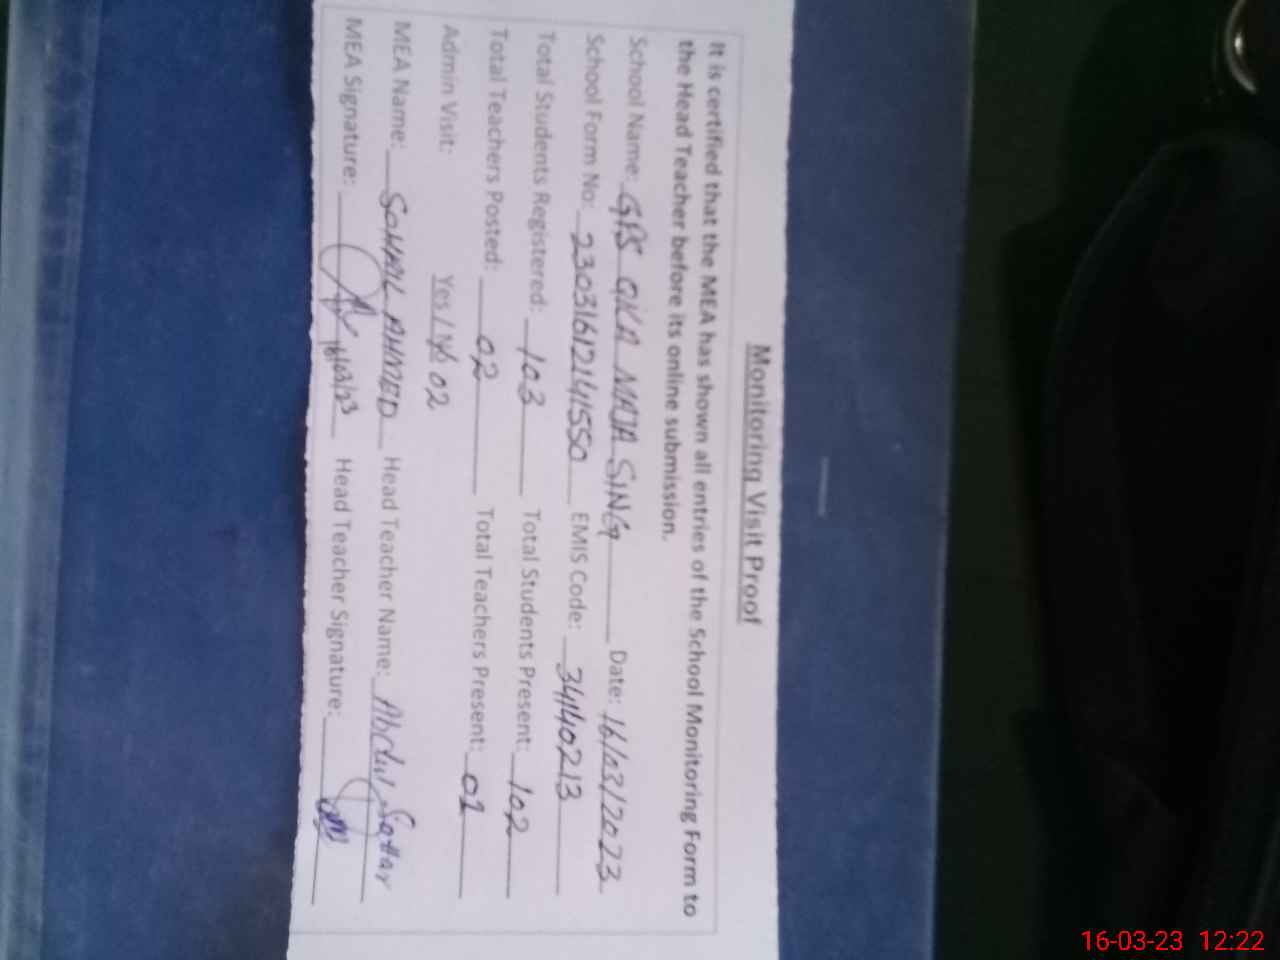 Monitoring Visit Proof
It is certified that the MEA has shown all entries of the School Monitoring Form to
the Head Teacher before its online submission.
School Name: GPS QILA MAJA SING Date: 16/03/2023
School Form No: 230316121411550 EMIS Code: 34140213
Total Students Registered: 103 Total Students Present: 102
Total Teachers Posted: 02 Total Teachers Present: 01
Admin Visit: Yes / No 02
MEA Name: SOHAIL AHMED Head Teacher Name: Abdul Sattar
MEA Signature: 16/03/23 Head Teacher Signature:
16-03-23 12:22